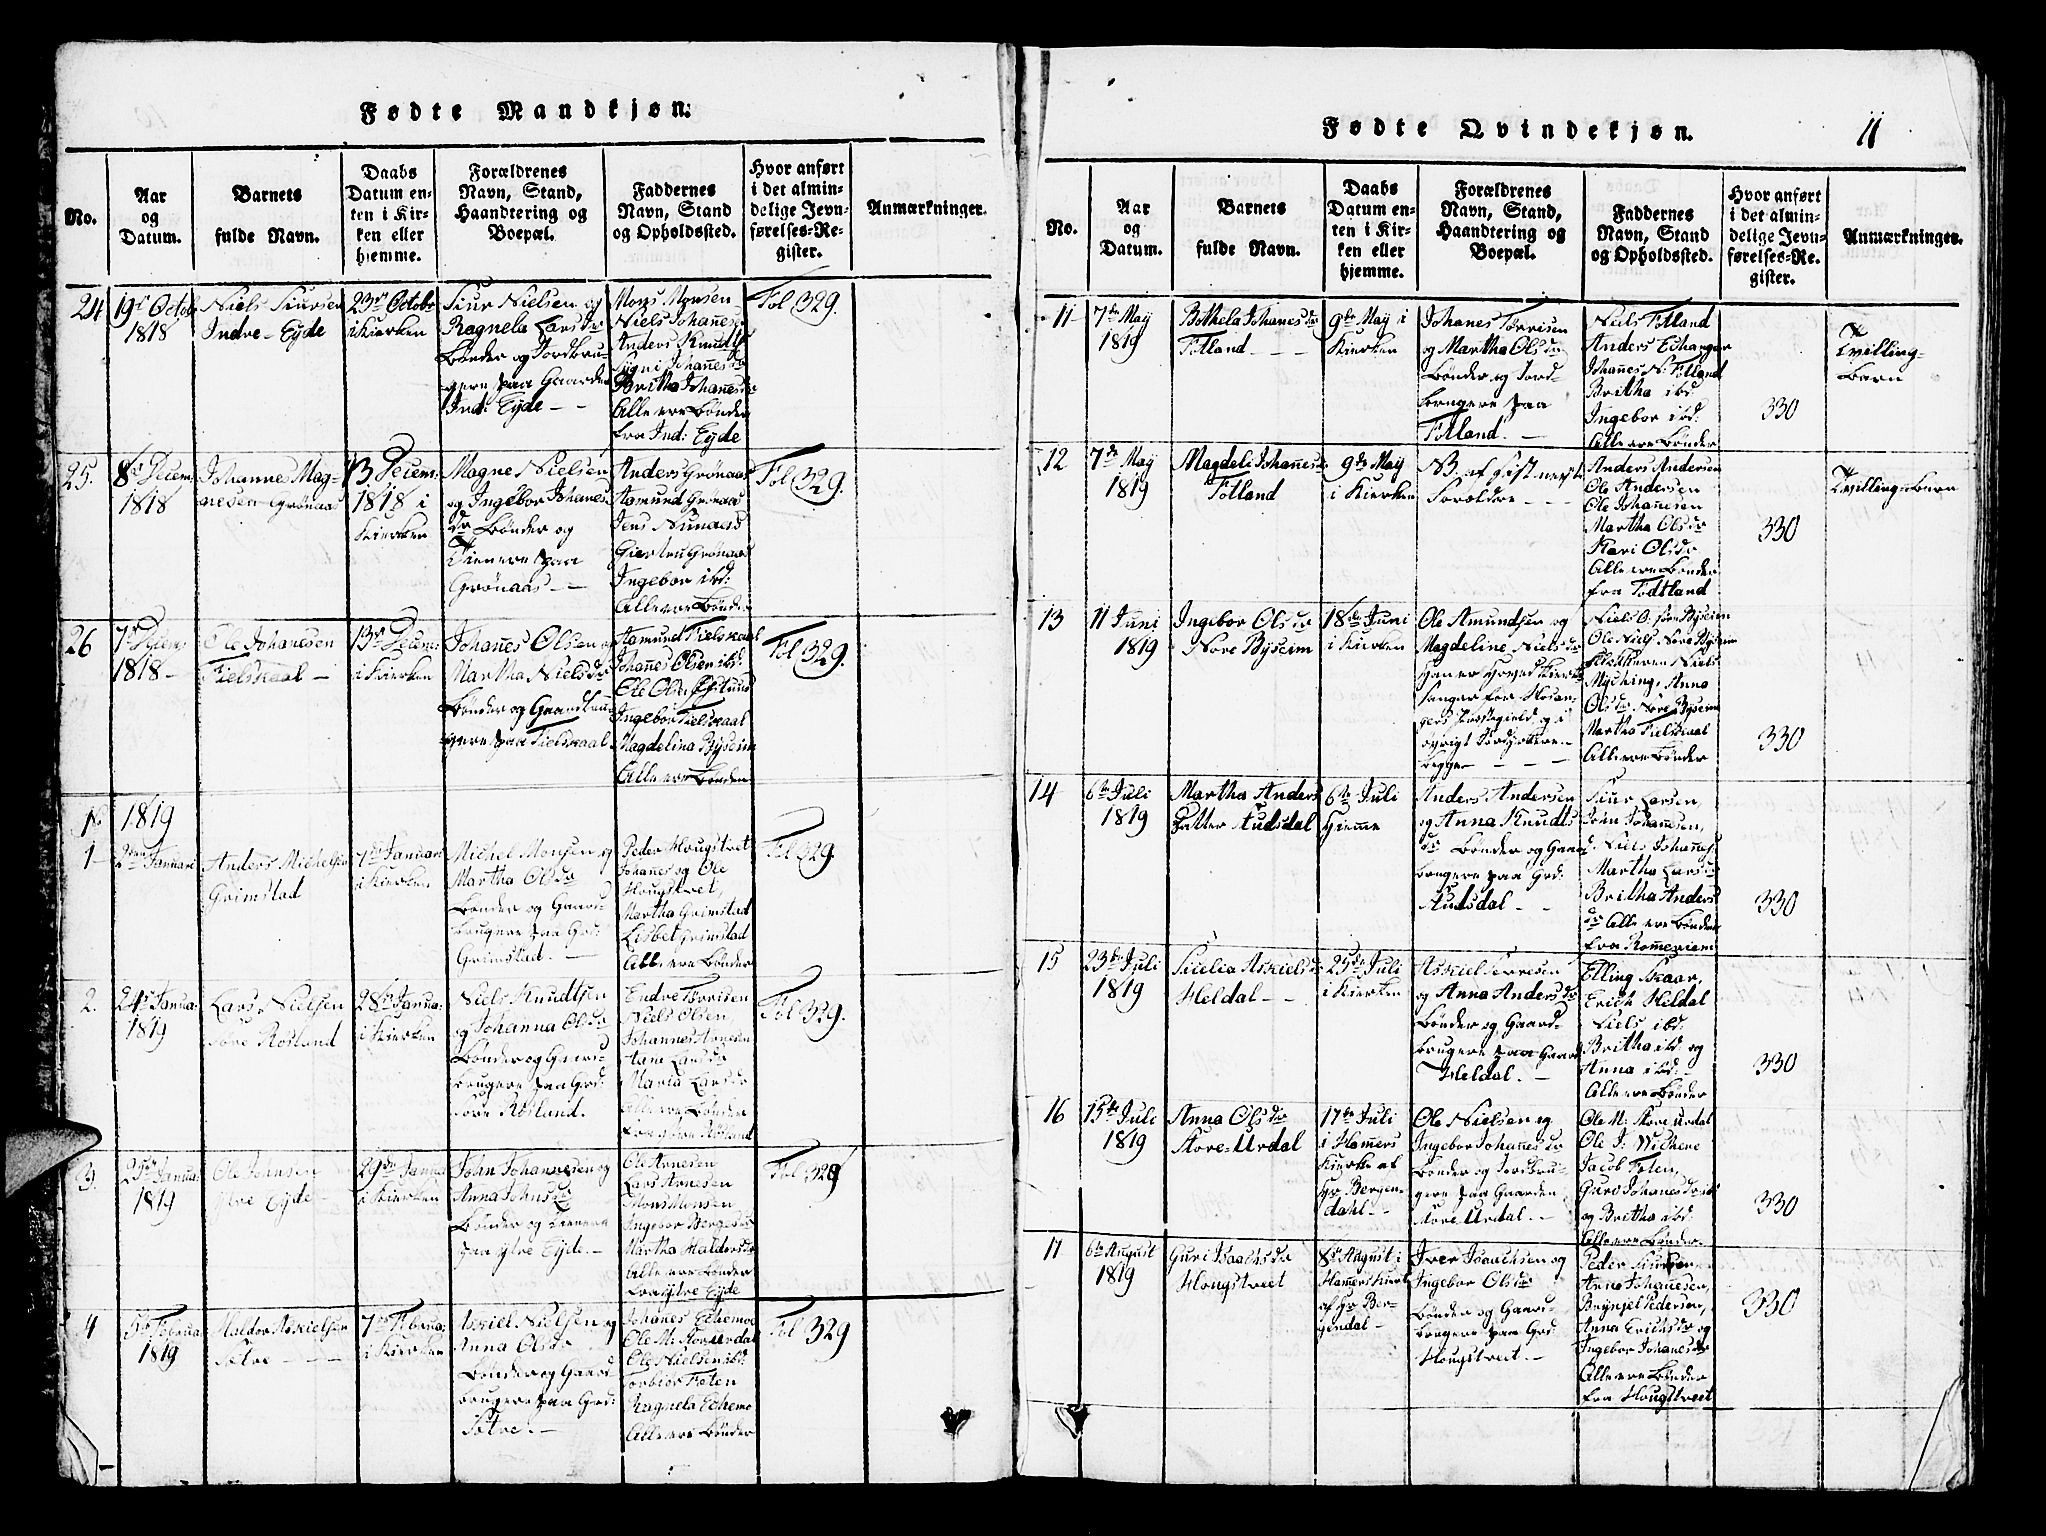 Fødte Mandkjøn.
No.
Aar
og
Datum.
Barnets
fulde Navn.
Daabs
Datum en-
ten i Kir-
ken eller
hjemme.
Forældrenes
Navn, Stand,
Haandtering og
Boepæl.
Faddernes
Navn, Stand
og Opholdssted.
Hvor anført
i det almin-
delige Jevn-
førelses-Re-
gister.
Anmærkninger.
24
19de Octob
1818
Niels Siursen
Indre Eyde
23de Octobr
i Kierken
Siur Nielsen og
Ragnela Larsdr
Bønder og Jordbru-
gere paa Gaarden
Ind: Eyde
Mons Monsen
Niels Johanesen
Anders Knudts
Sygni Johanesdr
Britha Johanesdr
Alle ere Bønder
fra Ind: Eyde
Fol 329.
25.
8de Decem
1818
Johannes Mag-
nesen Grønaas
13 Decem:
1818 i
Kierken
Magne Nielsen
og Ingebor Johanes
dr Bønder og
Tienere paa
Grønaas
Anders Grønaas
Aamund Grønaas
Jens Nunaas
Giertru Grønaas
Ingebor ibd:
Alle ere Bønder
Fol 329.
26
7de Decem
1818
Ole Johanesen
Fielskaal
13de Decem:
i Kierken
Johanes Olsen og
Martha Nielsdr
Bønder og Gaardbru-
gere paa Fielskaal
Aamund Fielskaal
Johanes Olsen ibd:
Ole Olsen
Ingebor Fielskaal
Magdelina Byseim
Alle ere Bønder
Fol 329.
1819
1
2den Januari
Anders Michelsen
Grimstad
7de Januari
i Kierken
Michel Monsen og
Martha Olsdr
Bønder og Gaard-
brugere paa Grd:
Grimstad.
Peder Hougstvet
Johanes og Ole
Hougstvet,
Martha Grimstad
Lisbet Grimstad
Alle ere Bønder
Fol 329.
2.
24de Janua:
1819
Lars Nielsen
Søre Røsland
28de Janua:
i Kierken
Niels Knudtsen
og Johanna Olsdr
Bønder og Gaard-
brugere paa Grd:
Søre Røsland.
Endre Tørrisen
Niels Olsen,
Johannes Arnesen
Larsdr
Maria Larsdr
Alle ere Bønder
fra Søre Røsland
Fol 329.
3.
25de Janua
1819
Ole Johnsen
Ytre Eyde
29de Janua
i Kierken
John Johannesen og
Anna Johnsdr
Bønder og Tienere
paa Ytre Eyde.
Ole Arnesen
Lars Arnesen
Mons Monsen
Ingebor Bergesdr
Martha Haldorsdr
Alle ere Bønder
fra Ytre Eyde
Fol 329
4
5te Februa
1819
Haldor Askielsen
Totre
7de Februa:
i Kierken
Askiel Nielsen og
Anna Olsdr
Bønder og Gaard
brugere paa Grd:
Totre.
Johanes Echemo
Ole M: Storeurdal
Ole Nielsen ibd:
Torbiør Toten
Ragnela Echemo
Alle ere Bønder
Fol 329
Fødte Qvindekjøn.
11
No.
Aar
og
Datum.
Barnets
fulde Navn.
Daabs
Datum en-
ten i Kir-
ken eller
hjemme.
Forældrenes
Navn, Stand,
Haandtering og
Boepæl.
Faddernes
Navn, Stand
og Opholdssted.
Hvor anført
i det almin-
delige Jevn-
førelses-Re-
gister.
Anmærkninger.
11
7de Maÿ
1819
Bothela Johanesdr
Totland
9de Maÿ i
Kierken
Johanes Tørrisen
og Martha Olsdr
Bønder og Jord-
brugere paa
Totland.
Niels Totland
Anders Echanger
Johanes N: Totland
Britha ibd:
Ingebor ibd:
Alle ere Bønder
330
Tvilling-
Børn
12
7de Maÿ
1819
Magdeli Johanesdr
Totland
9de Maÿ
i Kierken
NB. af sistnevnte
Forældre
Anders Andersen
Ole Andersen
Ole Johanesen
Martha Olsdr
Kari Olsdr
Alle ere Bønder
fra Todtland
330
Tvillingebørn
13
11 Juni
1819
Ingebor Olsdr
Nore Byseim
18de Juni
i Kierken
Ole Amundsen og
Magdeline Nielsdr
Han er Hoved Kierke
sanger for Hosan-
gers Præstegield og i
øvrigt Jordbrugere
begge
Niels O: Søre Byseim
Ole Niels: Nore Byseim
Niels
Myching, Anna
Olsdr. Nore Byseim
Martha Fielskaal
Alle ere Bønder
330
14
6te Juli
1819
Martha Anders
Datter Audsdal
6te Juli
Hjemme
Anders Andersen
og Anna Knudts
dr Bønder og Gaard
brugere paa Grd:
Audsdal
Siur Larsen,
John Johansen,
Niels Johanes
Martha Larsdr
Britha Anders
dr Alle ere Bønder
fra Romereim
330
15
23de Juli
1819
Sicelia Askielsdr
Heldal
25de Juli
i Kierken
Askiel Siversen
og Anna Andersdr
Bønder og Gaard-
brugere paa Gaard
Heldal.
Elling Skaar,
Erich Heldal
Niels ibd:
Britha ibd og
Anna ibd:
Alle ere Bønder
330
16
15de Juli
1819
Anna Olsdr
Store Urdal
17de Juli
i Hamers
Kierke af
Hr Bergen-
dahl
Ole Nielsen og
Ingebor Johannesdr
Bønder og Jordbru-
gere paa Gaarden
Store Urdal.
Ole M: Store Urdal
Ole J: Michene
Jacob Toten,
Guro Johanesdr ibd
og Britha ibd:
Alle ere Bønder
330
17
6te August
1819
Guri Isaachsdr
Hougstveit
8de August i
Hamers Kirke
af Hr Ber-
gendal
Iver Isaachsen og
Ingebor Olsdr
Bønder og Gaard-
brugere paa Grd:
Hougstveit.
Peder Siursen
Arne Johanesen,
Brynjel Pedersen,
Anna Erichsdr og
Ingebor Johanesdr
Alle ere Bønder
fra Hougstveit
330